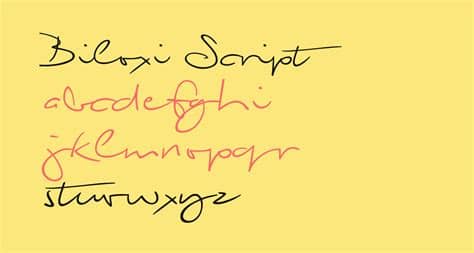 Biloxi Script
abcdefghi
jklmnopqr
stuvwxyz